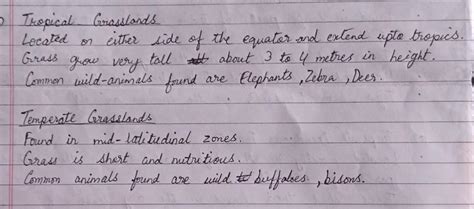 Tropical Grasslands
Located on either side of the equator and extend upto tropics.
Grass grow very tall about 3 to 4 metres in height.
Common wild-animals found are Elephants, Zebra, Deer.
Temperate Grasslands
Found in mid-latitudinal zones.
Grass is short and nutritious.
Common animals found are wild buffaloes, bisons.